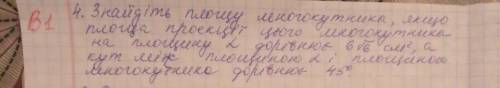 В1 4. Знайдіть площу многокутника, якщо
площа проєкції цього многокутника
на площину α дорівнює 6√6 см², а
кут між площиною α і площиною
многокутника дорівнює 45°